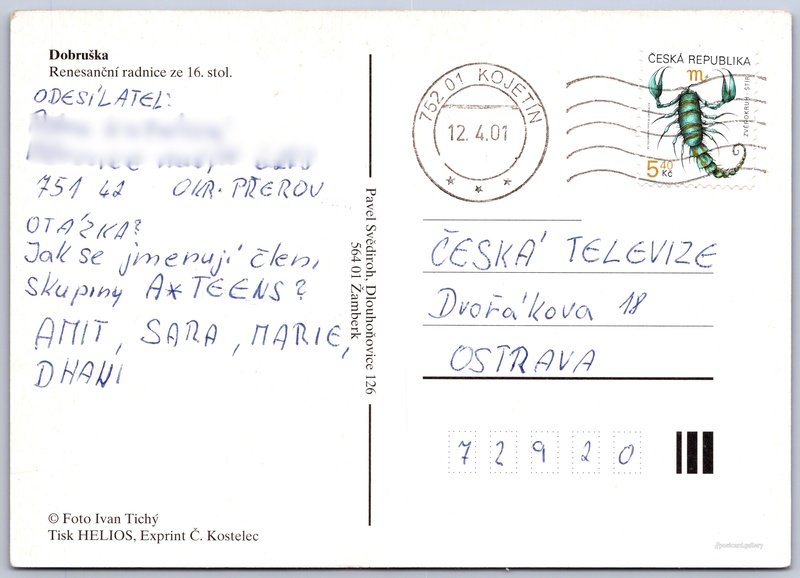 Dobruška
Renesanční radnice ze 16. stol.
ODESÍLATEL:
751 42 OKR. PŘEROV
OTÁZKA?
Jak se jmenují členi
skupiny A*TEENS?
AMIT, SARA, MARIE,
DHANI
© Foto Ivan Tichý
Tisk HELIOS, Exprint Č. Kostelec
Pavel Svědiroh, Dlouhoňovice 126
564 01 Žamberk
752 01 KOJETÍN
12.4.01
ČESKÁ REPUBLIKA
ZVĚROKRUH ŠTÍR
5 40
Kč
ČESKÁ TELEVIZE
Dvořákova 18
OSTRAVA
72920